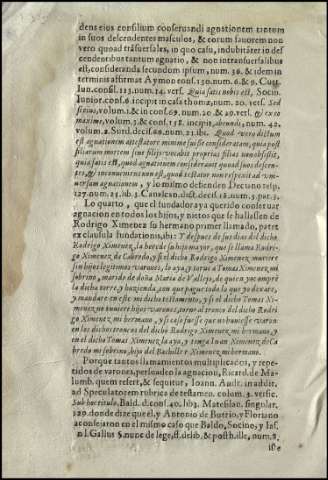 dens eius consilium conseruandi agnationem tantum
in suos descendentes masculos, & eorum fauorem non
vero quoad trāsuersales, in quo casu, indubitāter in des
cendentibus tantum agnatio, & non in transuersalibus
est, consideranda secundum ipsum, num. 36. & idem in
terminis affirmas Aymon cons. 130. num. 6. & 9. Curt.
Iun. consil. 113. num. 14. vers. Quia satis nobis est, Socin.
Iunior. cons. 6. incipit in casa thomæ, num. 20. vers. Sed
fortius, volum. 1. & in cons. 69. num. 20. & 29. vers.
volum. 3. & cons. 158. incipit, num. 42.
volum. 2. Surd. decis. num. 21. ibi. Quod vero dictum
est agnationem attestatore minime fuisse consideratam, quia post
filiorum mortem sunt filiæ vocabit proprias filias non obsistit,
quia satis est, quod agnationem considerauit quoad suos descen-
tes, & inconueniens non est, quod testator non respexit ad vni-
uersam agnationem, y lo mismo defienden Decuno relp.
127. num. 25. lib. 3. Canalcan. dict. decis. 12. num. 5. par. 3.
Lo quarto, que el fundador aya querido conseruar
agnacion en todos los hijos, y nietos que se hallassen de
Rodrigo Ximenez su hermano primer llamado, patet
ex clausula fundationis, ibi: Y despues de sus dias del dicho
Rodrigo Ximenez, la herede su hijo mayor, que se llama Rodri-
go Ximenez de Cabredo, y si el dicho Rodrigo Ximenez muriere
sin hijos legitimos varones, lo aya, y torne a Tomas Ximenez, mi
sobrino, marido de doña Maria de Vallejo, de quien yo compre
la dicha torre, y hazienda, con que pague todo lo que yo dexare,
y mandare en este mi dicho testamento, y si el dicho Tomas Xi-
menez no tuuiere hijos varones, torne al tronco del dicho Rodri-
go Ximenez mi hermano, y si caso fuesse que no huuiesse varon
en los dichos troncos del dicho Rodrigo Ximenez, mi hermano, y
en el dicho Tomas Ximenez, la aya, y tenga Iuan Ximenez de Ca
bredo mi sobrino, hijo del Bachiller Ximenez mi hermano.
Porque tantos llamamientos multiplicados, y repe-
tidos de varones, persuadẽ la agnacion, Ricard. de Ma-
lumb. quem refert, & sequitur, Ioann. Andr. in addit.
ad Speculatorem rubrica de testamen. colum. 3. versic.
Sub hoc titulo. Bald. d. cons. 40. lib. 3. Matesilan. singular.
129. donde dize que el, y Antonio de Butrio, y Floriano
aconsejaron en el mismo caso que Baldo, Socino, y Ias.
in l. Gallus §. nunc de lege, ff. de lib. & posthi. lle, num. 2.